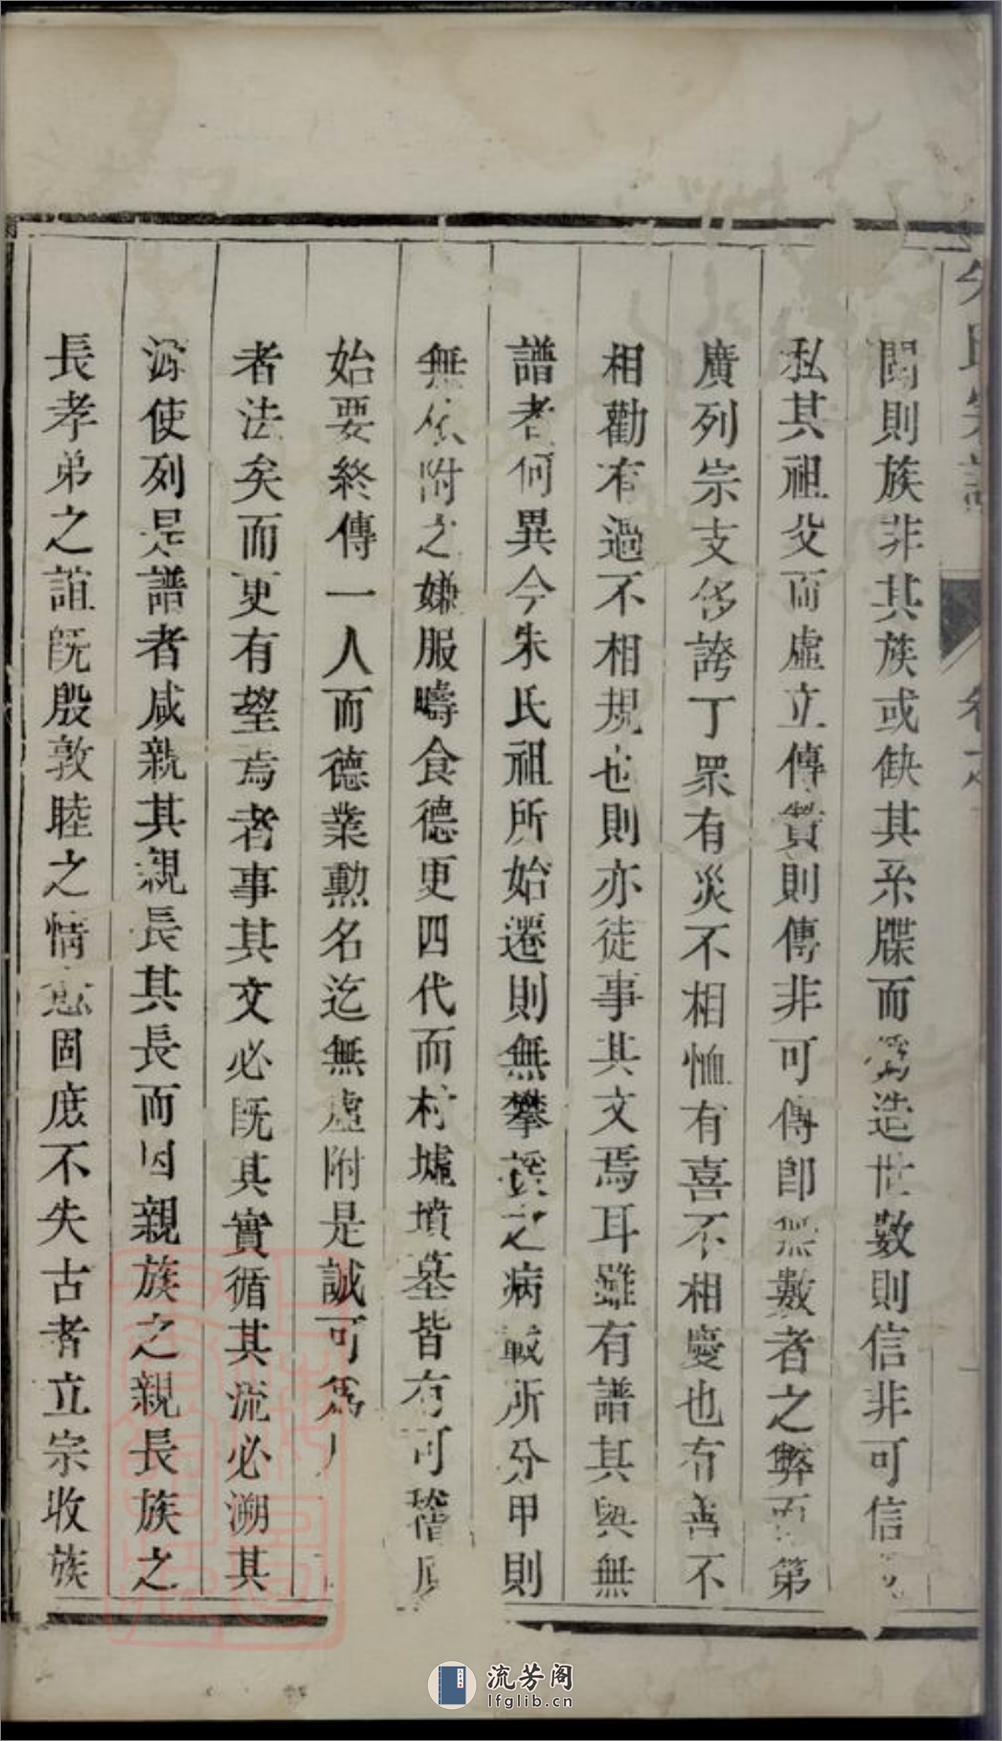 閥則族非其族或缺其系牒而爲造世數則信非可信
私其祖父而虛立傳贊則傳非可傳卽無數者之弊而第
廣列宗支侈誇丁眾有災不相恤有喜不相慶也有善不
相勸有過不相規也則亦徒事其文焉耳雖有譜其與無
譜者何異今朱氏祖所始遷則無攀援之病載所分甲則
無依附之嫌服疇食德更四代而村墟墳墓皆有可稽
始要終傳一人而德業勳名迄無虛附是誠可爲
者法矣而更有望焉者事其文必旣其實循其流必溯其
源使列是譜者咸親其親長其長而因親族之親長族之
長孝弟之誼旣殷敦睦之情愈固庶不失古者立宗收族
朱氏宗譜
卷之
流芳阁
lfglib.cn